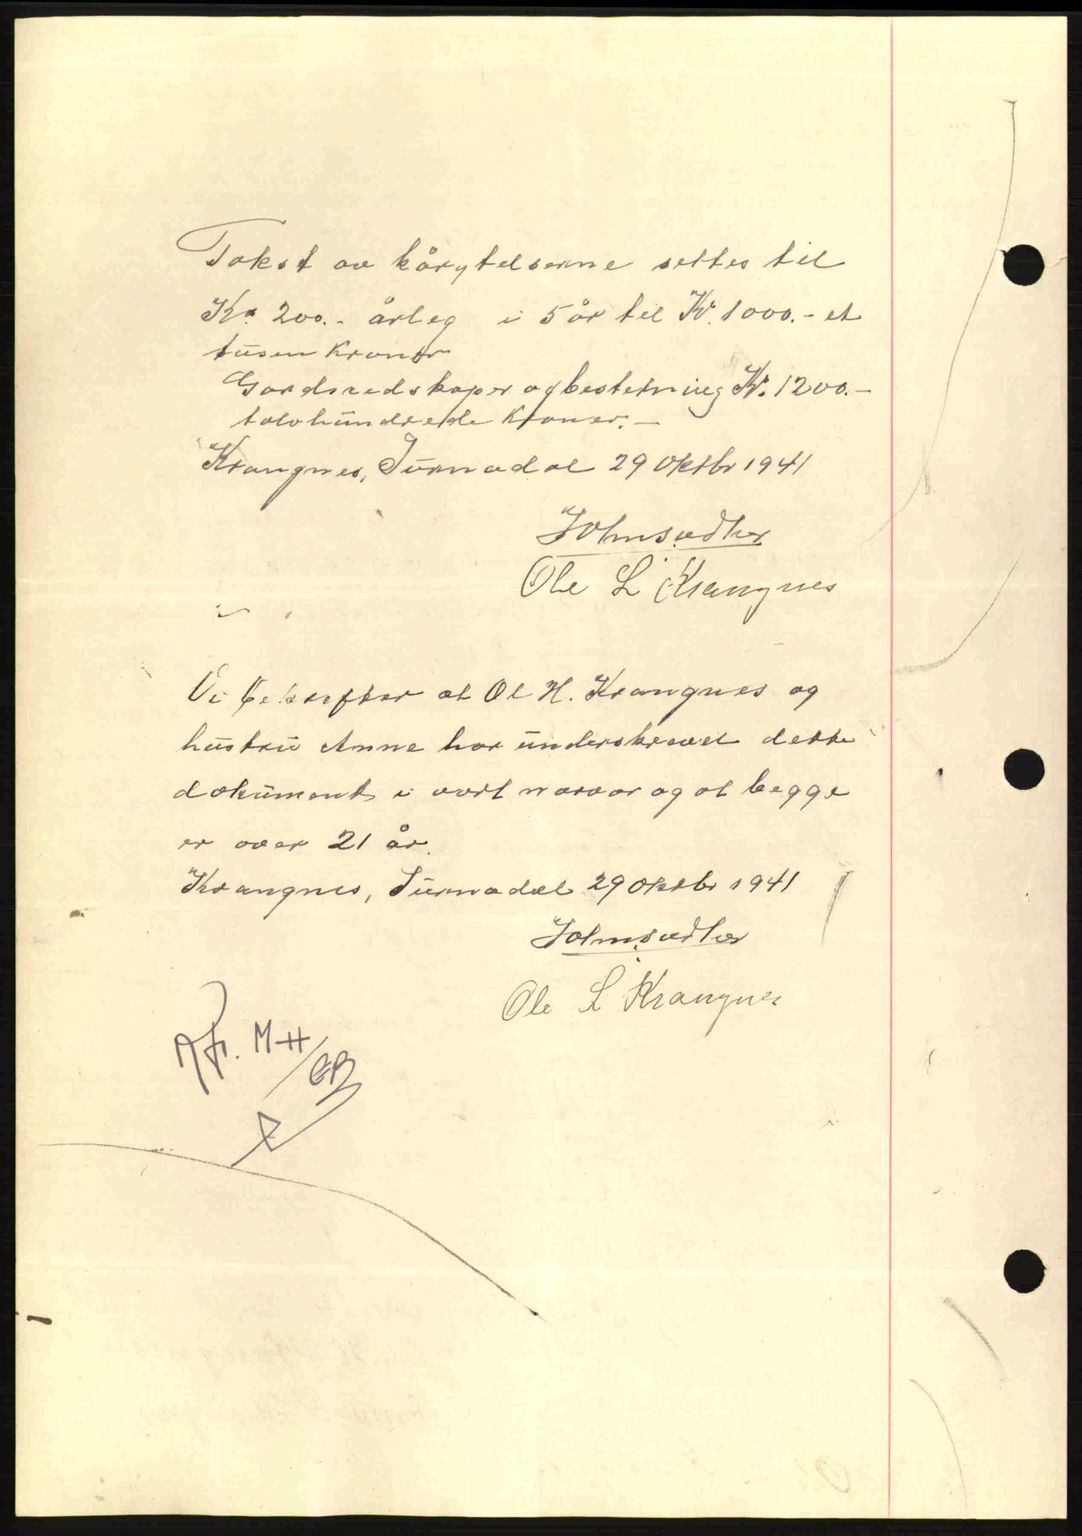 Takst av kårytelserne settes til
Kr 200.- årleg i 5 år til Kr. 1000.- et
tusen kroner
Gardsredskaper og besetning Kr. 1200.-
tolvhundrede kroner.-
Krangnes, Surnadal 29 oktbr 1941
J Holmsæther
Ole L Krangnes
Vi bekrefter at Ol H. Krangnes og
hustru Anne har underskrevet dette
dokument i vort nærvær og at begge
er over 21 år.
Krangnes, Surnadal 29 oktbr 1941
J Holmsæther
Ole L Krangnes
Afr. MH
/GB